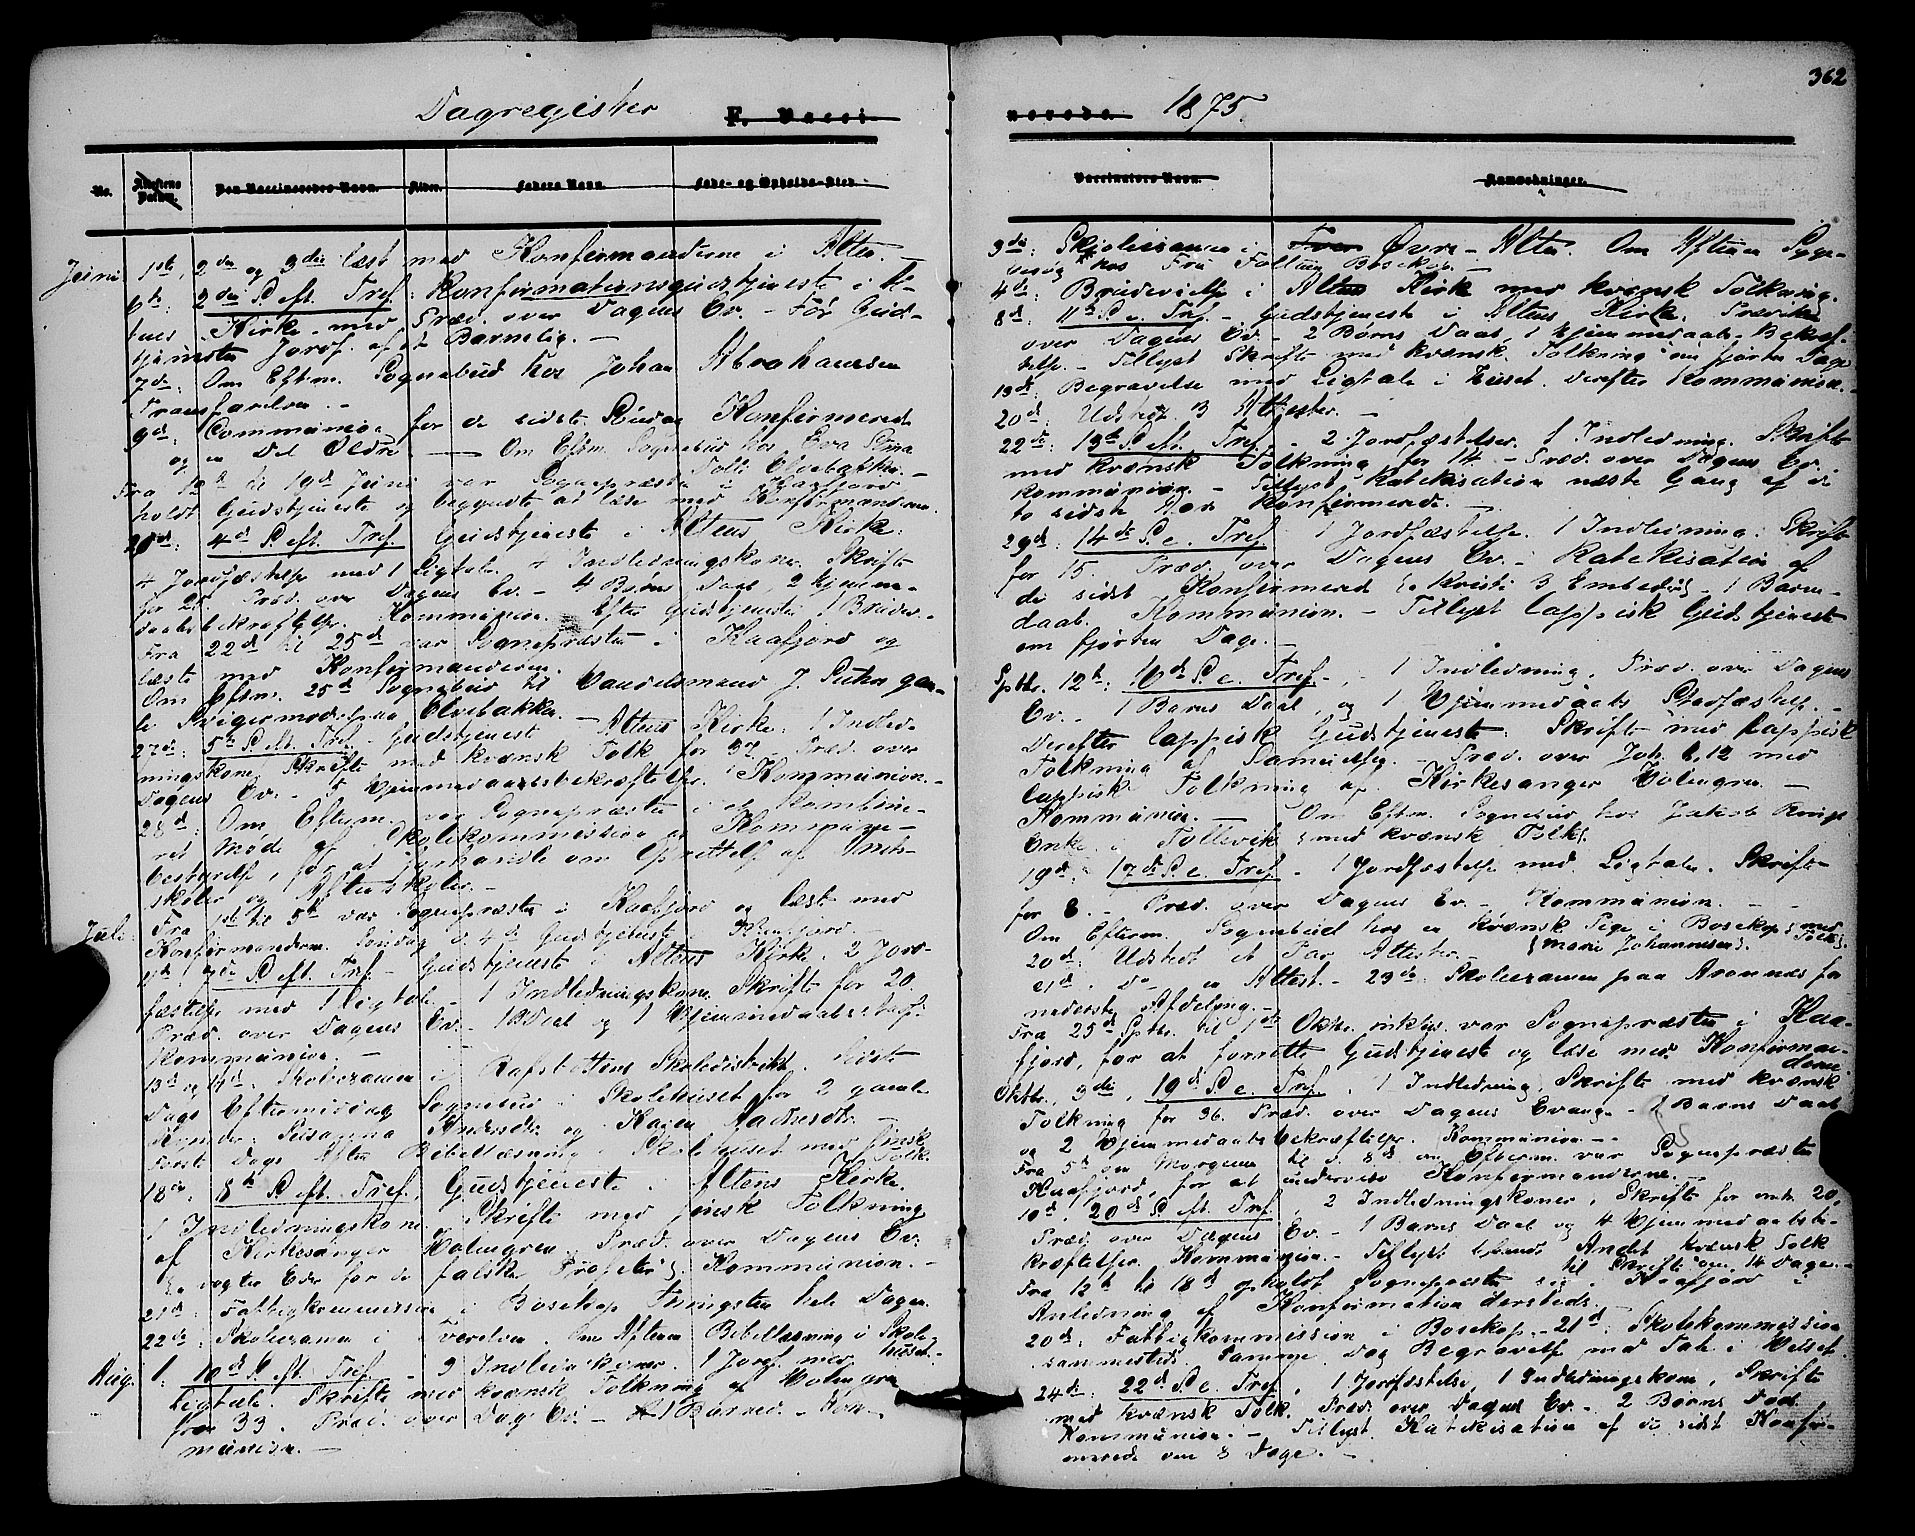 362
Dagregister F. Vacci-
nerede 1875.
No. Attestens Datum. Den Vaccineredes Navn. Alder. Faders Navn. Føde- og Opholds-Sted.
Vaccinators Navn. Anmærkninger.
Juni 1ste, 2den og 3die læst med Konfirmanderne i Alten. -
6te: 2den S. eft. Tref.: Konfirmationsgudstjeneste i Al-
tens Kirke med Præd. over Dagens Ev. - Før Gud-
tjenesten Jordf. af et Barnelig. -
7de: Om Eftm. Sognebud hos Johan Abrahamsen
Transfarelven. -
9de: Communion for de sidste Søndag Konfirmerede
og en Del Ældre. - Om Eftm. Sognebud hos Eva Stina
Elvebakken. -
Fra 12te til 19de Juni var Sognepræsten i Kaafjord
holdt Gudstjeneste og begyndte at læse med Konfirmanderne.
20de: 4de S. eft. Tref. Gudstjeneste i Altens Kirke:
4 Jordfæstelse med 1 Ligtale. 4 Indledningskoner. Skrifte
for 25. Præd. over Dagens Ev. - 4 Børns Daab, 2 Hjemme-
daabsbekræftelse. Kommunion. Efter Gudstjenesten 1 Brude-
Fra 22de til 25de var Sognepræsten i Kaafjord og
læste med Konfirmanderne.
Om Eftm. 25de Sognebud til Handelsmand J. gam-
le Svigermoder paa Elvebakken. -
27de: 5te S. eft. Tref. Gudstjeneste i Altens Kirke: 1 Indled-
ningskone. Skrifte med kvænsk Tolk for 37. Præd. over
Dagens Ev. - 5 Hjemmedaabsbekræftelser. Kommunion. -
28de: Om Eftm. var Sognepræsten i et kombine-
ret Møde af Skolekommission og Kommune-
bestyrelse, for at forhandle om Oprettelse af Amts-
skoler og Aftenskoler. -
Juli Fra 1ste til 5te var Sognepræsten i Kaafjord og læst med
Konfirmanderne. Søndag d. 4de Gudstjeneste i Kaafjord. -
S. eft. Tref. - Gudstjeneste i Altens Kirke. 2 Jord-
fæstelse med 1 Ligtale. - 1 Indledningskone. Skrifte for 20.
Præd. over Dagens Ev. - 1 B. Daab og 1 Hjemmedaabsbekræf.
Kommunion. -
13de og 14de Skoleexamen i Rafsbottens Skoledistrikt. Sidste
Dags Eftermiddag Sognebud i Skolehuset for 2 gamle
Kvinder: Susanna Andersdtr og Karen Andersdtr. -
Første Dags Aften Bibellæsning i Skolehuset med finsk Tolk.
18de: 8de S. eft. Tref. Gudstjeneste i Altens Kirke.
1 Indledningskone. Skrifte med finsk Tolkning
af Kirkesanger Holmgren. Præd. over Dagens Ev.
vogter Eder for de falske Profeter. Kommunion. -
21de: Fattigkommission i Bosekop Thingstue hele Dagen.
22de: Skoleexamen i Tverelven. Om Aftenen Bibellæsning i Skole-
huset.
Aug. 1: 10de S. eft. Tref. - 3 Indledn. koner. 1 Jordf. med
Ligtale. Skrifte med kvænsk Tolkning af Holmgren
for 33. Præd. over Dag. Ev. - 1 Barned. - Kom-
munion. -
3de: Skoleexamen i Øvre-Alten. Om Aftenen Syge-
besøg hos Fru Bosekop. -
4de: Brudevielse i Altens Kirke med kvænsk Tolkning.
8de: 11te S. e. Tref. - Gudstjeneste i Altens Kirke. Prædiken
over Dagens Ev. - 2 Børns Daab, 1 Hjemmedaabs-Bekræf-
telse. - Tillyst Skrifte med kvænsk Tolkning om fjorten Dage.
19de: Begravelse med Ligtale i Huset. Derefter Kommunion. -
20de: Udstedt 3 Attester. -
22de: 13de S. eft. Tref. - 2 Jordfæstelser. 1 Indledning. Skrifte
med kvænsk Tolkning for 14. - Præd. over Dagens Ev. -
Kommunion. - Tillyst Katekisation næste Gang af de
to sidste Aar Konfirmerede. -
29de: 14de S. e. Tref. 1 Jordfæstelse. 1 Indledning. Skrifte
for 15. Præd. over Dagens Ev. - Katekisation af
de sidst Konfirmerede (Kristi 3 Embeder). - 1 Barne-
daab. Kommunion. - Tillyst lappisk Gudstjeneste
om fjorten Dage. -
Sptbr. 12te: 16de S. e. Tref. - 1 Indledning. Præd. over Dagens
Ev. - 1 Barns Daab, og 1 Hjemmedaabs Stadfæstelse. -
Derefter lappisk Gudstjeneste: Skrifte med lappisk
Tolkning af Samuelsen. - Præd. over Joh. 6,12 med
lappisk Tolkning af Kirkesanger Holmgren. -
Kommunion. - Om Eftm. Sognebud hos Jakob
Enke i Tollevik (med kvænsk Tolk).
19de: 17de S. e. Tref. - 1 Jordfæstelse med Ligtale. Skrifte
for 8. - Præd. over Dagens Ev. - Kommunion. -
Om Efterm. Sognebud hos en kvænsk Pige i Bosekop med Tolk
(Marie Johannesen).
20de: Udstedt et Par Attester. -
21de: Do en Attest. - 29de: Skoleexamen paa Aronnæs for
nederste Afdeling. -
Fra 25de Sptbr. til 1ste Oktbr. inklus. var Sognepræsten i Kaa-
fjord, for at forrette Gudstjeneste og læse med Konfirman-
derne.
Oktbr. 3die, 19de S. e. Tref. 1 Indledning, Skrifte med kvænsk
Tolkning for 36. Præd. over Dagens Evang. - 1 Barns Daab
og 2 Hjemmedaabsbekræftelser. Kommunion. -
Fra 5te om Morgenen til d. 8de om Efterm. var Sognepræsten
i Kaafjord, for at undervise Konfirmanderne. -
10de: 20de S. eft. Tref. 2 Indledningskoner. Skrifte for omtr. 20.
Præd. over Dagens Ev. - 1 Barns Daab og 4 Hjemmedaabsbe-
kræftelser. Kommunion. - Tillyst Andet kvænsk Tolk
til Skrifte om 14 Dage. -
Fra 12te til 18de opholdt Sognepræsten sig i Kaafjord i
Anledning af Konfirmation dersteds. -
20de: Fattigkommission i Bosekop. - 21de: Skolekommission
sammesteds. Samme Dag Begravelse med Tale i Huset.
24de: 22de S. e. Tref. 1 Jordfæstelse, 1 Indledningskone, Skrifte
med kvænsk Tolk. Præd. over Dagens Ev. - 2 Børns Daab.
Kommunion. - Tillyst Katekisation af de sidst Konfir-
merede om 8 Dage. -